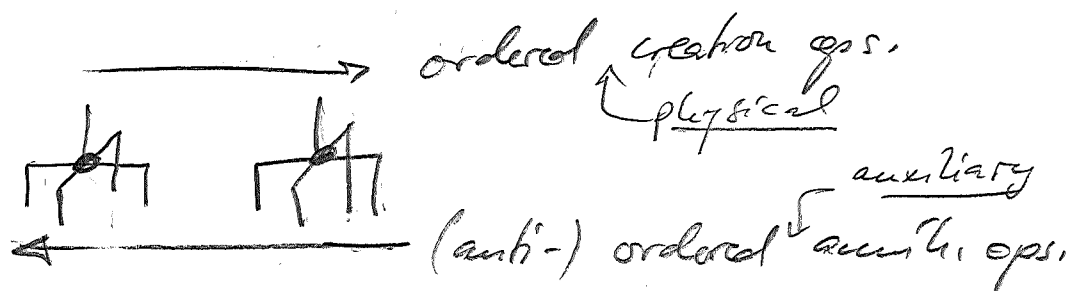 ordered creation ops.
physical
auxiliary
(anti-) ordered annih. ops.